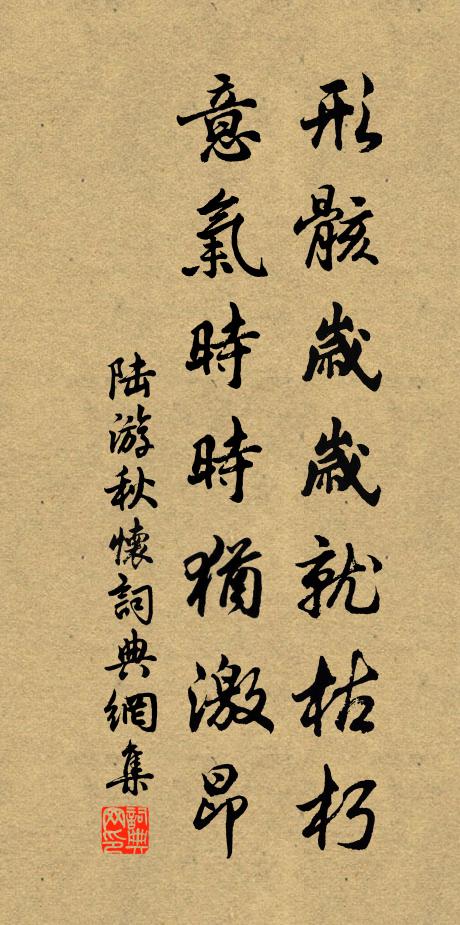 形骸歲歲就枯朽
意氣時時猶激昂
陆游秋懷詞典網集
詞典网印